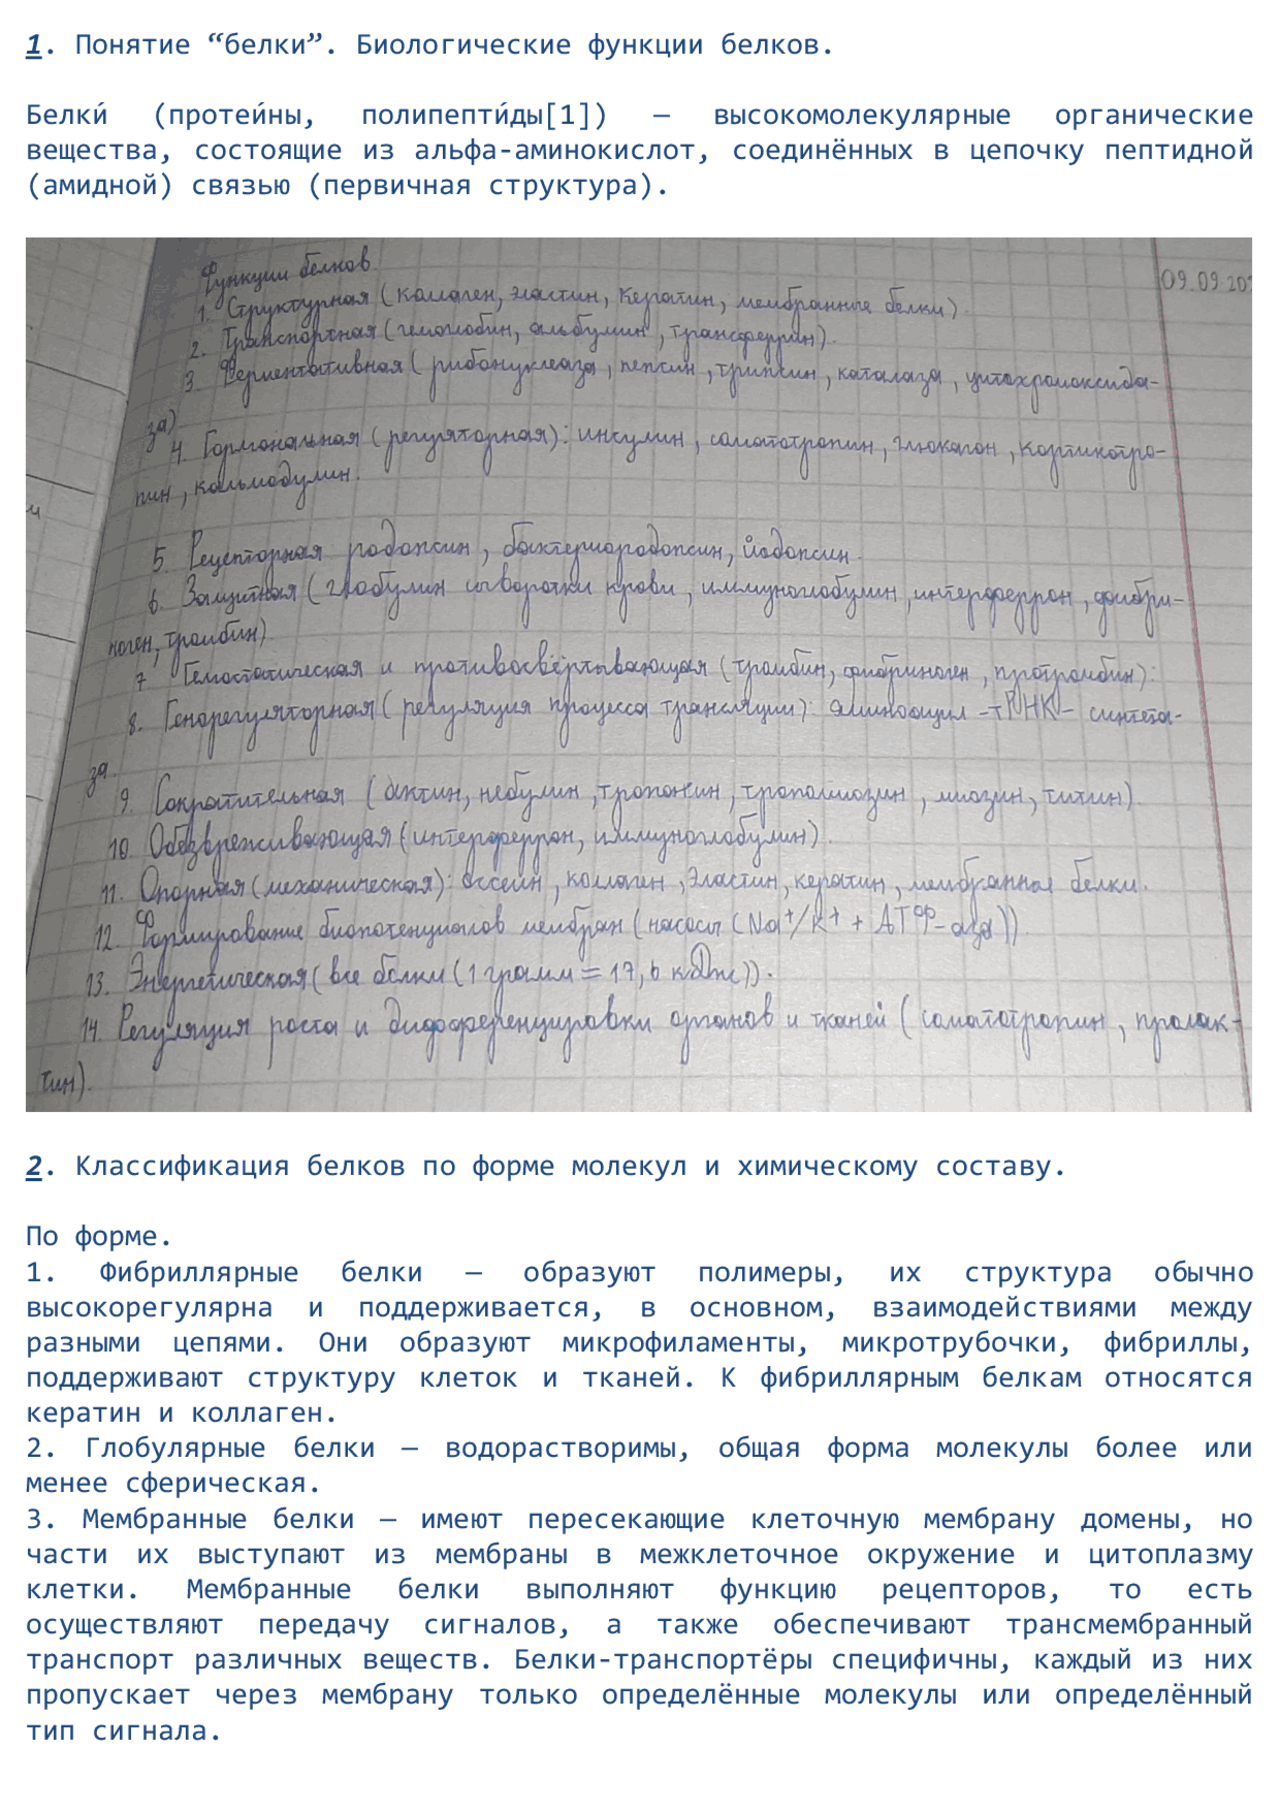 1. Понятие “белки”. Биологические функции белков.
Белки́ (протеи́ны, полипепти́ды[1]) — высокомолекулярные органические
вещества, состоящие из альфа-аминокислот, соединённых в цепочку пептидной
(амидной) связью (первичная структура).
Функции белков
09.09.202
1. Структурная (коллаген, эластин, кератин, мембранные белки).
2. Транспортная (гемоглобин, альбумин, трансферрин).
3. Ферментативная (рибонуклеаза, пепсин, трипсин, каталаза, цитохромоксида-
за)
4. Гормональная (регуляторная): инсулин, соматотропин, глюкагон, кортикотро-
пин, кальмодулин.
5. Рецепторная родопсин, бактериородопсин, йодопсин.
6. Защитная (глобулин сыворотки крови, иммуноглобулин, интерферрон, фибри-
ноген, тромбин)
7 Гемостатическая и противосвёртывающая (тромбин, фибриноген, протромбин):
8. Генорегуляторная (регуляция процесса трансляции): аминоацил -тРНК- синтета-
за.
9. Сократительная (актин, небулин, тропонин, тропомиозин, миозин, титин).
10. Обезвреживающая (интерферрон, иммуноглобулин).
11. Опорная (механическая): оссеин, коллаген, эластин, кератин, мембранные белки.
12. Формирование биопотенциалов мембран (насосы (Na⁺/K⁺ + АТФ-аза))
13. Энергетическая (все белки (1 грамм = 17,6 кДж)).
14. Регуляция роста и дифференцировки органов и тканей (соматотропин, пролак-
тин).
2. Классификация белков по форме молекул и химическому составу.
По форме.
1. Фибриллярные белки — образуют полимеры, их структура обычно
высокорегулярна и поддерживается, в основном, взаимодействиями между
разными цепями. Они образуют микрофиламенты, микротрубочки, фибриллы,
поддерживают структуру клеток и тканей. К фибриллярным белкам относятся
кератин и коллаген.
2. Глобулярные белки — водорастворимы, общая форма молекулы более или
менее сферическая.
3. Мембранные белки — имеют пересекающие клеточную мембрану домены, но
части их выступают из мембраны в межклеточное окружение и цитоплазму
клетки. Мембранные белки выполняют функцию рецепторов, то есть
осуществляют передачу сигналов, а также обеспечивают трансмембранный
транспорт различных веществ. Белки-транспортёры специфичны, каждый из них
пропускает через мембрану только определённые молекулы или определённый
тип сигнала.